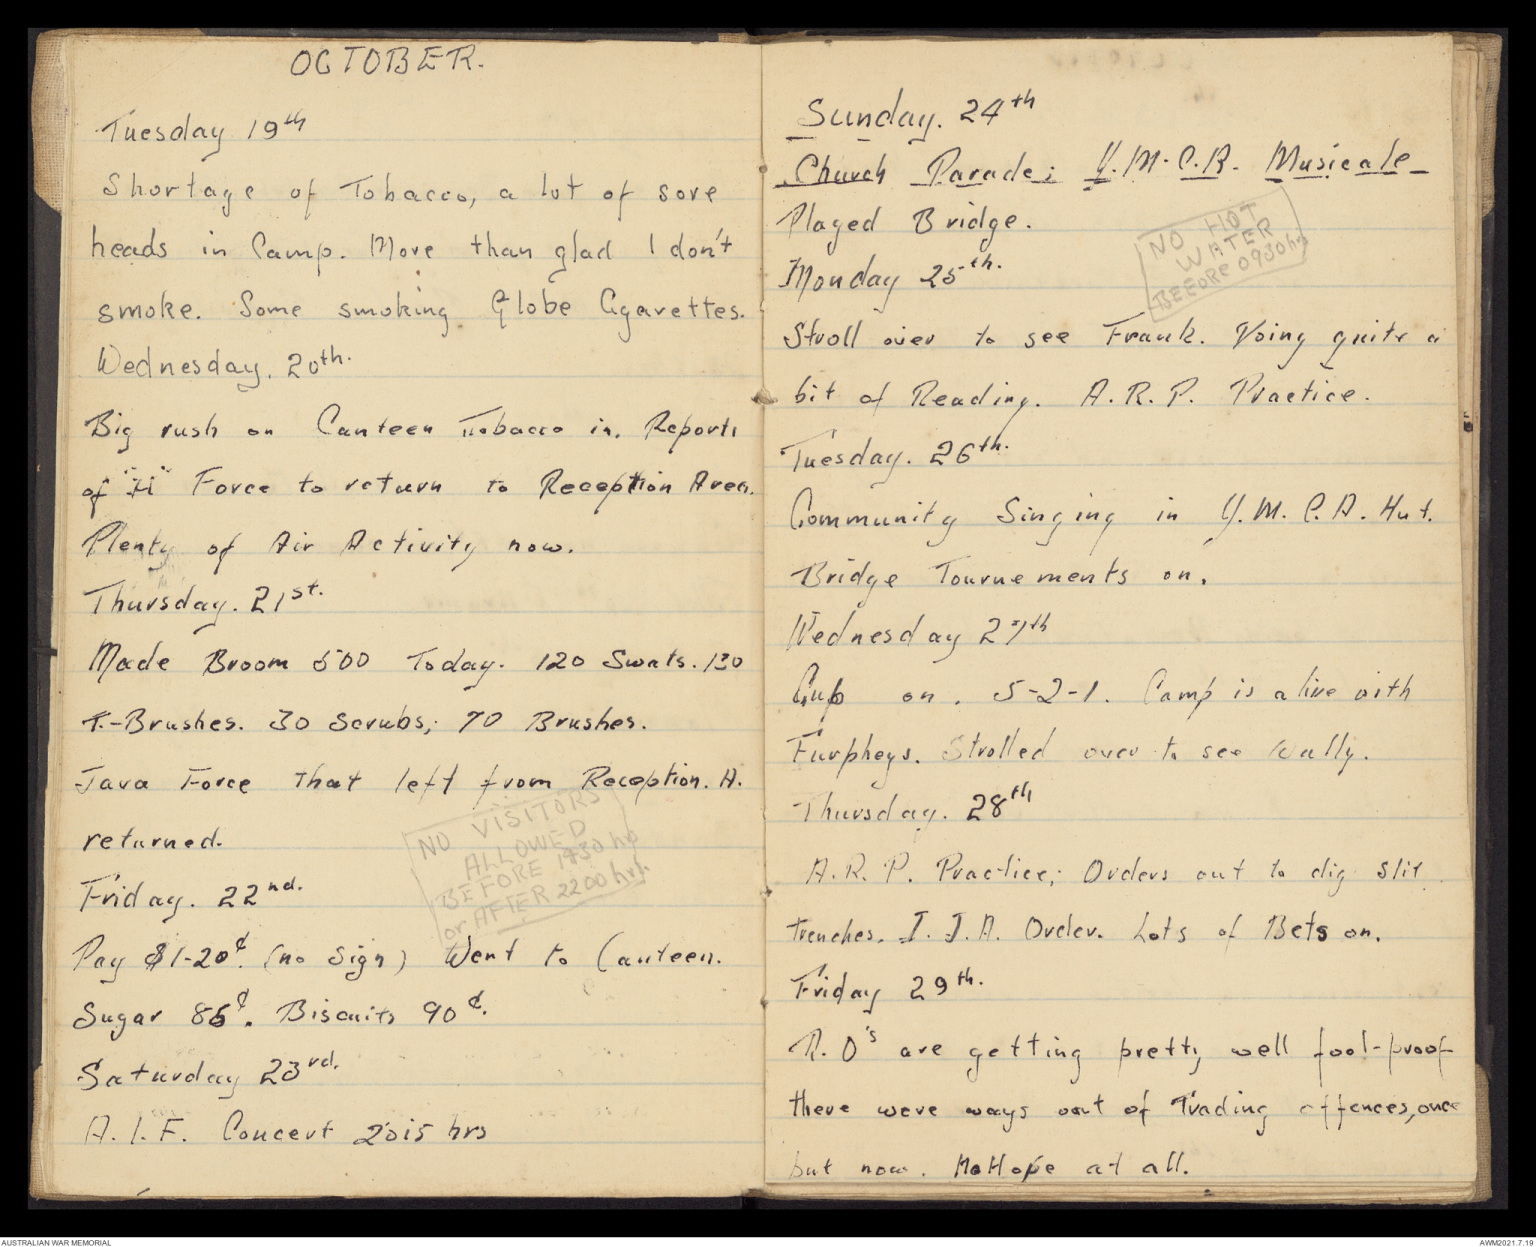 OCTOBER.
Tuesday 19th
Shortage of Tobacco, a lot of sore
heads in Camp. More than glad I don't
smoke. Some smoking Globe Cigarettes.
Wednesday. 20th.
Big rush on Canteen Tobacco in. Reports
of "H" Force to return to Reception Area.
Plenty of Air Activity now.
Thursday. 21st.
Made Broom 500 Today. 120 Swats. 130
T.-Brushes. 30 Scrubs; 70 Brushes.
Java Force that left from Reception. A.
returned.
NO VISITORS
ALLOWED
BEFORE 1430 hrs
or AFTER 2200 hrs.
Friday. 22nd.
Pay $1-20¢. (no Sign) Went to Canteen.
Sugar 85¢. Biscuits 90¢.
Saturday 23rd.
A.I.F. Concert 2015 hrs
Sunday. 24th
Church Parade; Y.M.C.A. Musicale
Played Bridge.
NO HOT
WATER
BEFORE 0930 hrs
Monday 25th.
Stroll over to see Frank. Doing quite a
bit of Reading. A.R.P. Practice.
Tuesday. 26th.
Community Singing in Y.M.C.A. Hut.
Bridge Tournements on.
Wednesday 27th
Cup on. 5-2-1. Camp is alive with
Furpheys. Strolled over to see Wally.
Thursday. 28th
A.R.P. Practice; Orders out to dig slit
trenches. I.J.A. Order. Lots of Bets on.
Friday 29th.
R.O's are getting pretty well fool-proof
there were ways out of Trading offences, once
but now. No Hope at all.
AUSTRALIAN WAR MEMORIAL
AWM2021.7.19